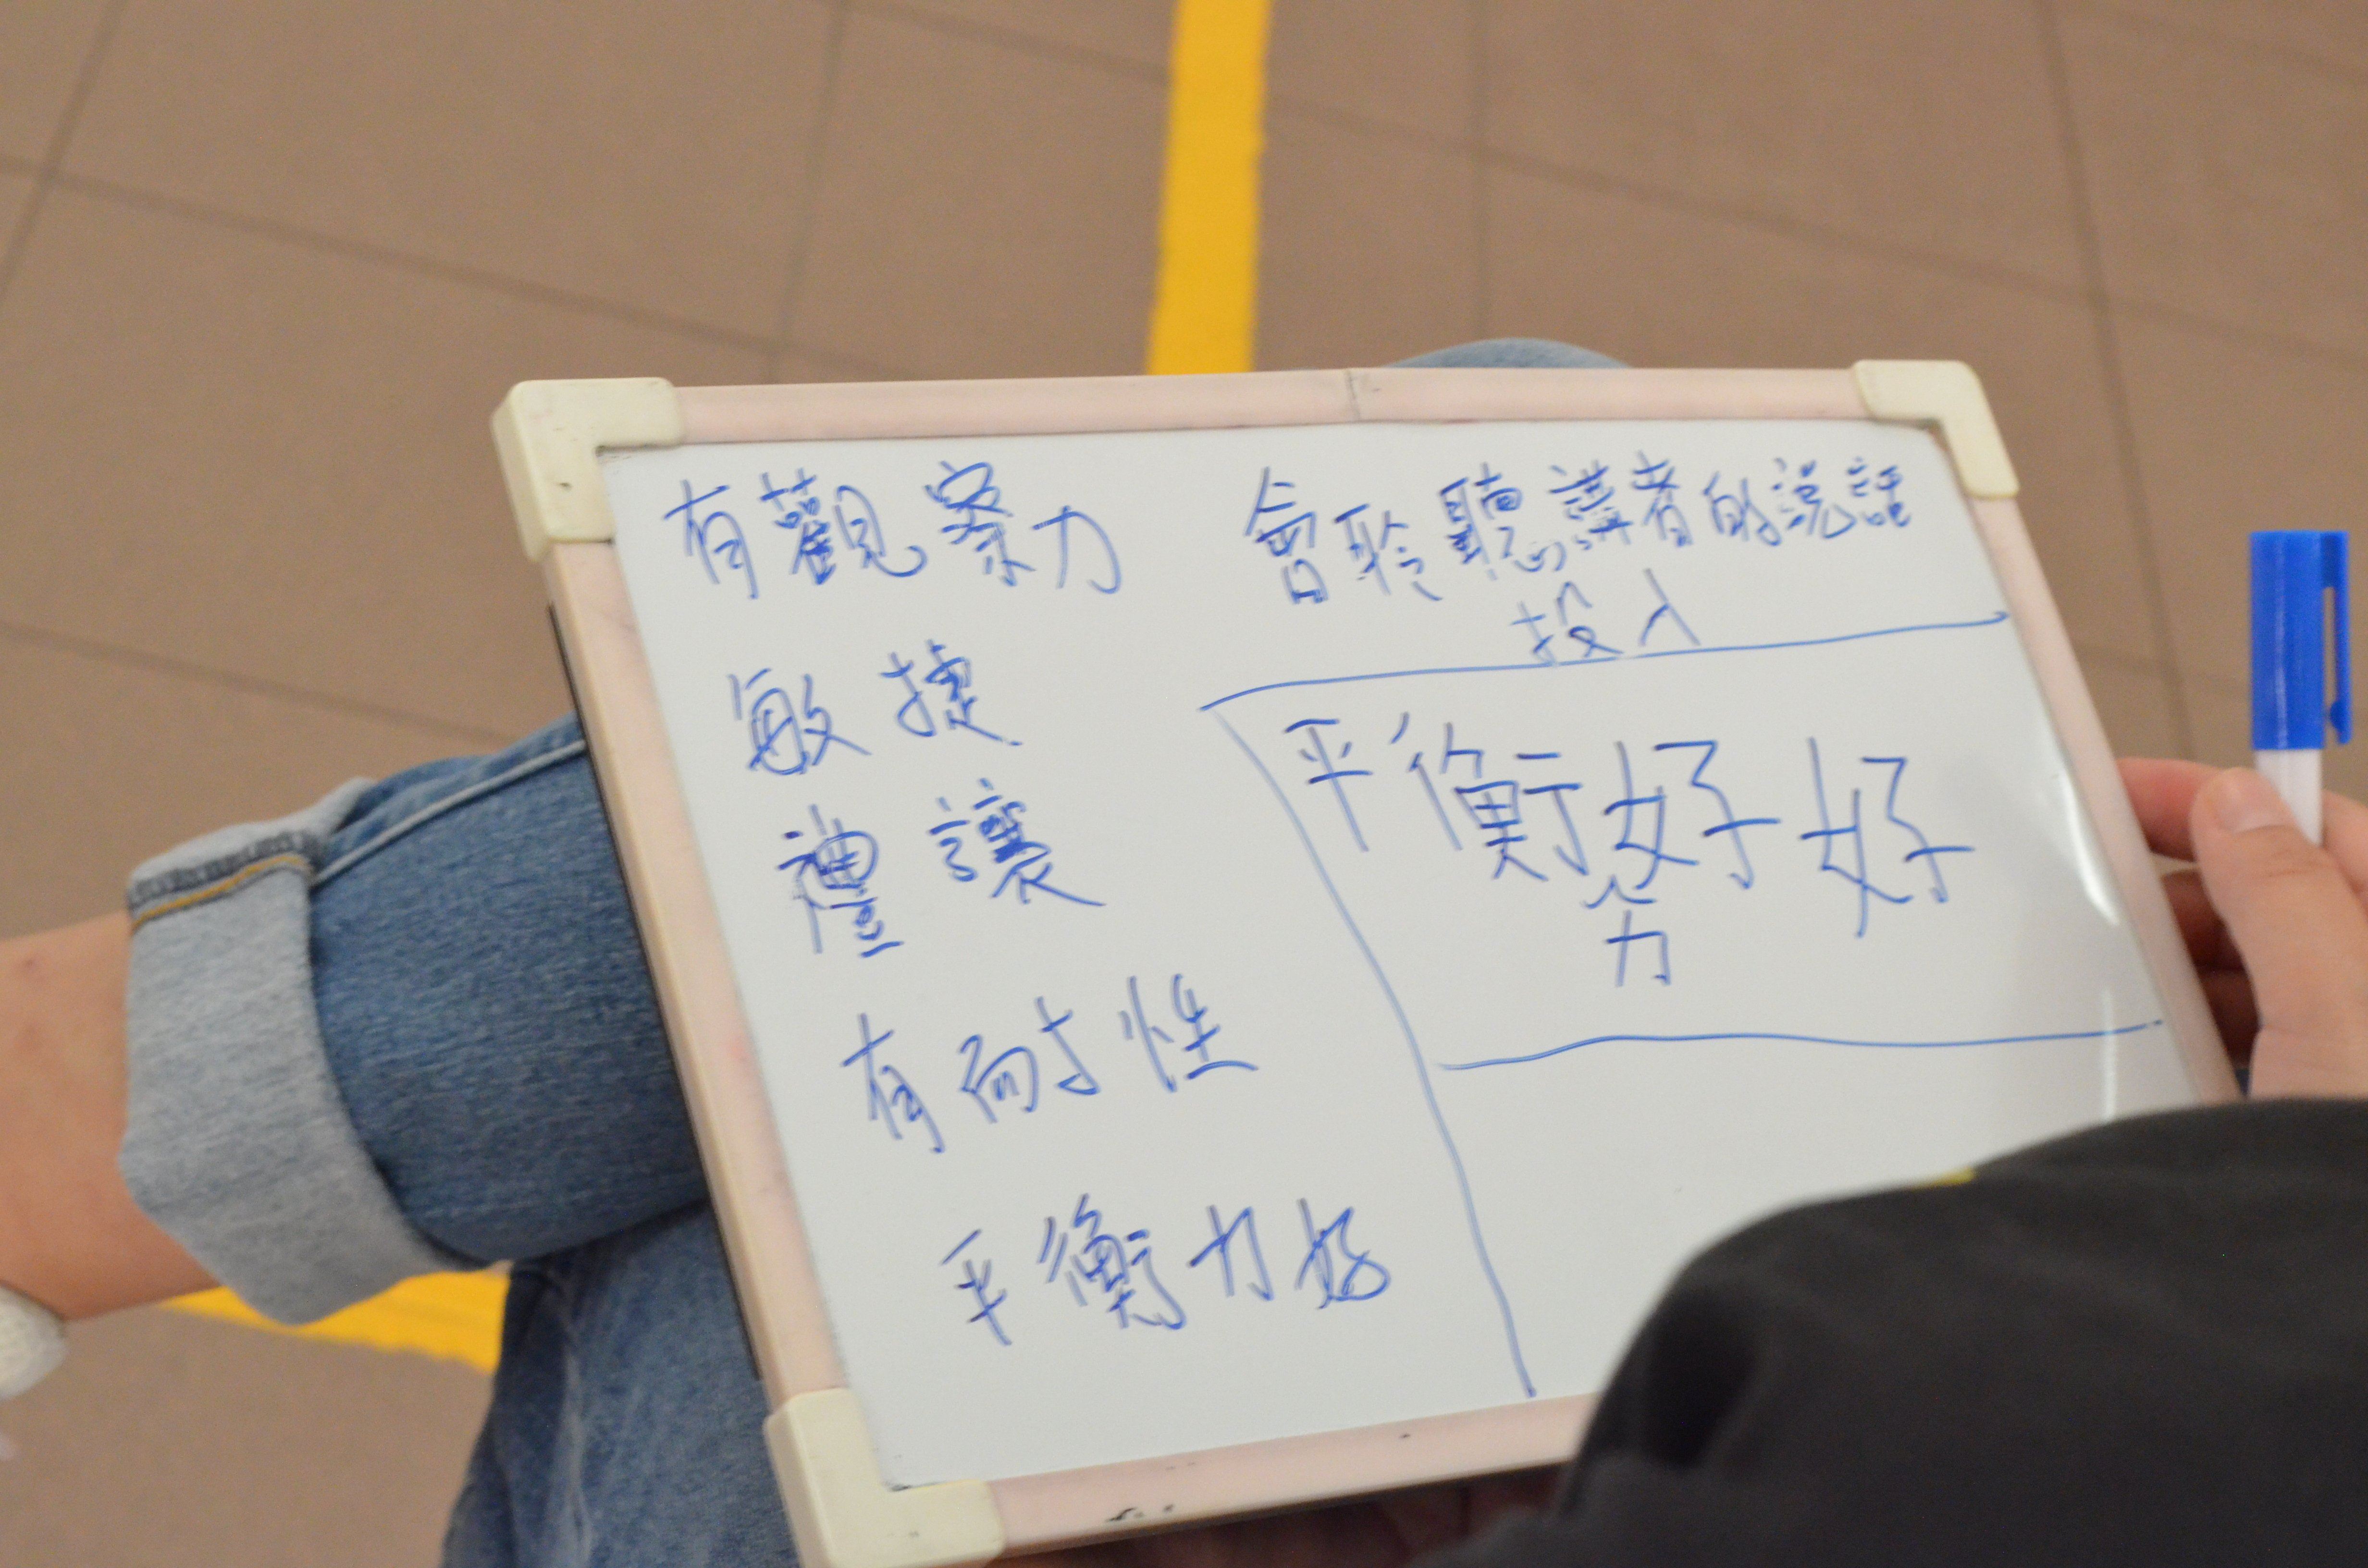 有觀察力
敏捷
禮讓
有耐性
平衡力好
會聆聽講者的說話
投入
平衡好好
力